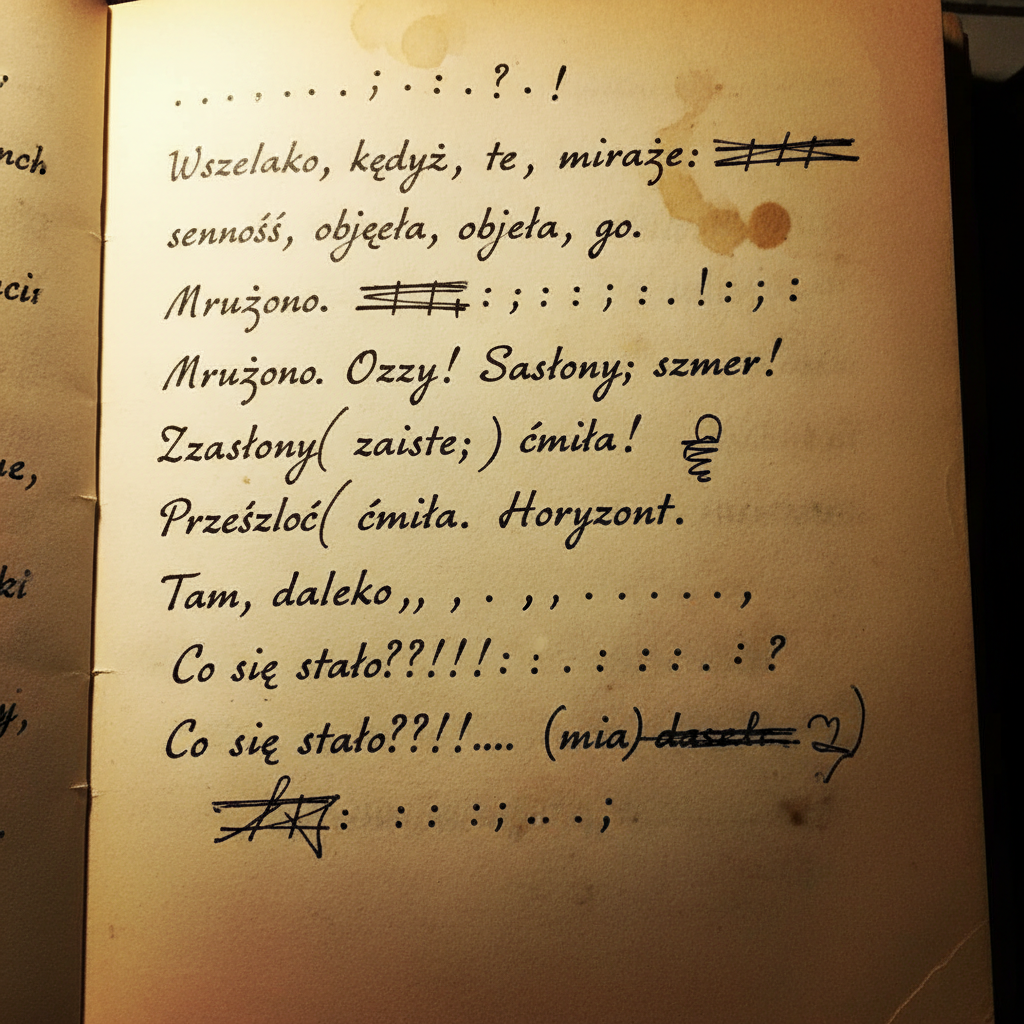 . . . , . . . ; . : . ? . !
Wszelako, kędyż, te, miraże:
sennośś, objęeła, objeła, go.
Mrużono. : ; : : ; : . ! : ; :
Mrużono. Ozzy! Sasłony; szmer!
Zzasłony( zaiste; ) ćmiła!
Prześzloć( ćmiła. Horyzont.
Tam, daleko,, , . , , . . . . . . ,
Co się stało??!!!: : . : : : . : ?
Co się stało??!!.... (mia) )
: : : : ; .. . ;